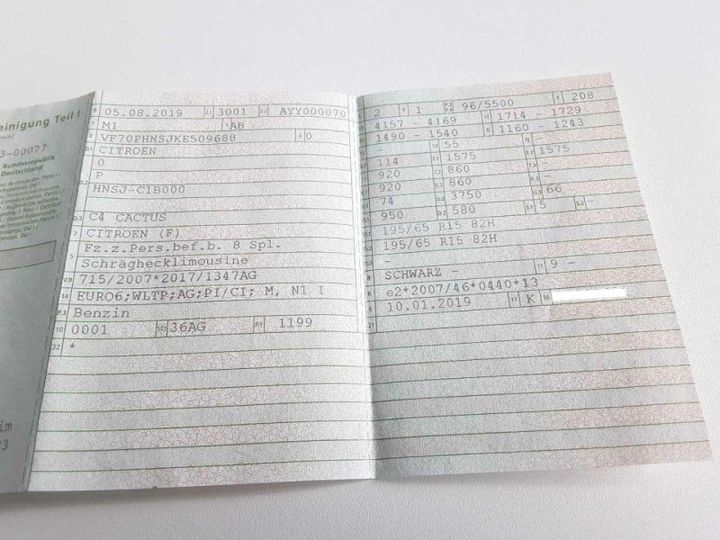 einigung Teil I
3-00077
Bundesrepublik
Deutschland
im
73
B 05.08.2019 2.1 3001 2.2 AYY000070
J M1 4 AB
E VF70PHNSJKE509688 3 0
D.1 CITROEN
0
D.2 P
HNSJ-C1B000
D.3 C4 CACTUS
2 CITROEN (F)
5 Fz.z.Pers.bef.b. 8 Spl.
Schräghecklimousine
V.9 715/2007*2017/1347AG
14 EURO6;WLTP;AG;PI/CI; M, N1 I
P.3 Benzin
10 0001 14.1 36AG P.1 1199
22 *
2 9 1 96/5500 T 208
4157 - 4169 1714 - 1729
1490 - 1540 1160 - 1243
55 -
114 1575 1575
920 860 -
920 860 -
74 3750 66
950 580 5 -
195/65 R15 82H
195/65 R15 82H
-
R SCHWARZ - 11 9 -
K e2*2007/46*0440*13
6 10.01.2019 17 K 16
21